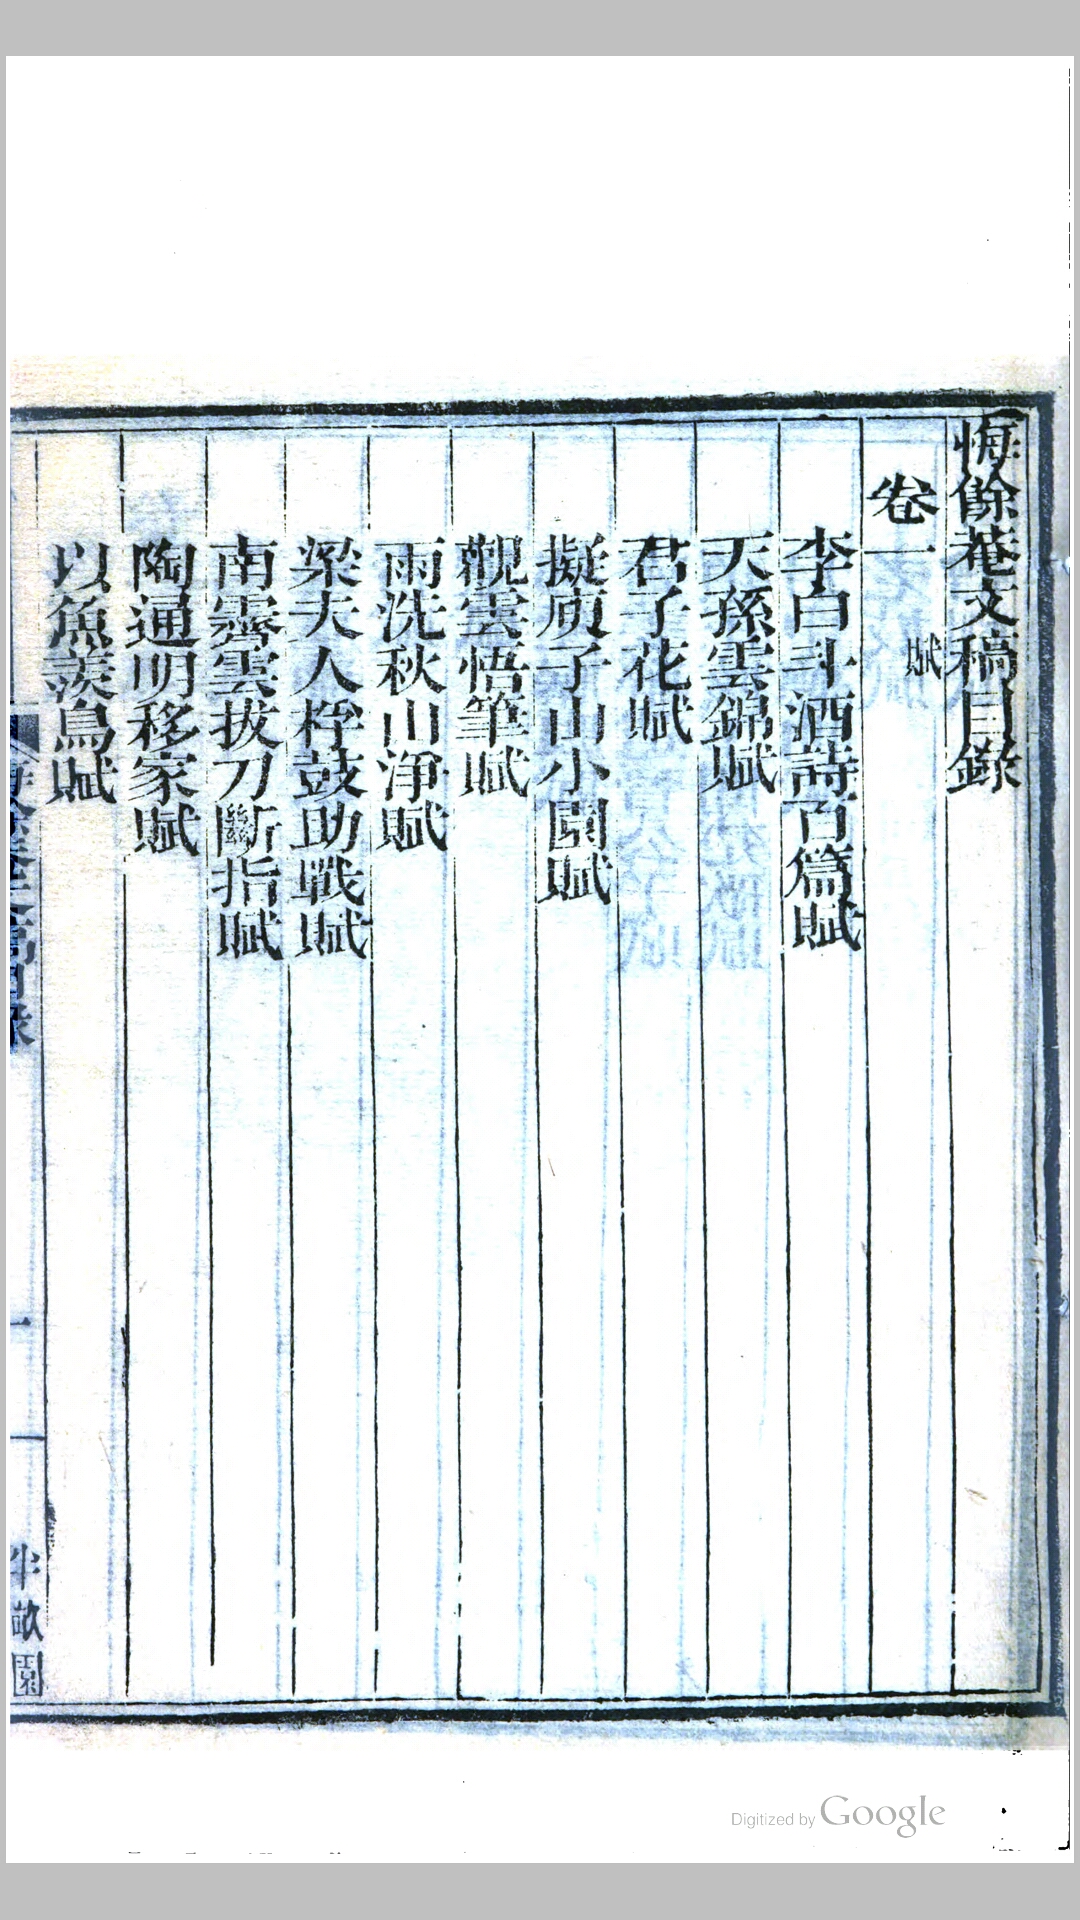 悔餘菴文稿目錄
卷一
賦
李白斗酒詩百篇賦
天孫雲錦賦
君子花賦
擬庾子山小園賦
觀雲悟筆賦
雨洗秋山淨賦
梁夫人桴鼓助戰賦
南霽雲拔刀斷指賦
陶通明移家賦
以魚羨鳥賦
一
半畝園
Digitized by Google